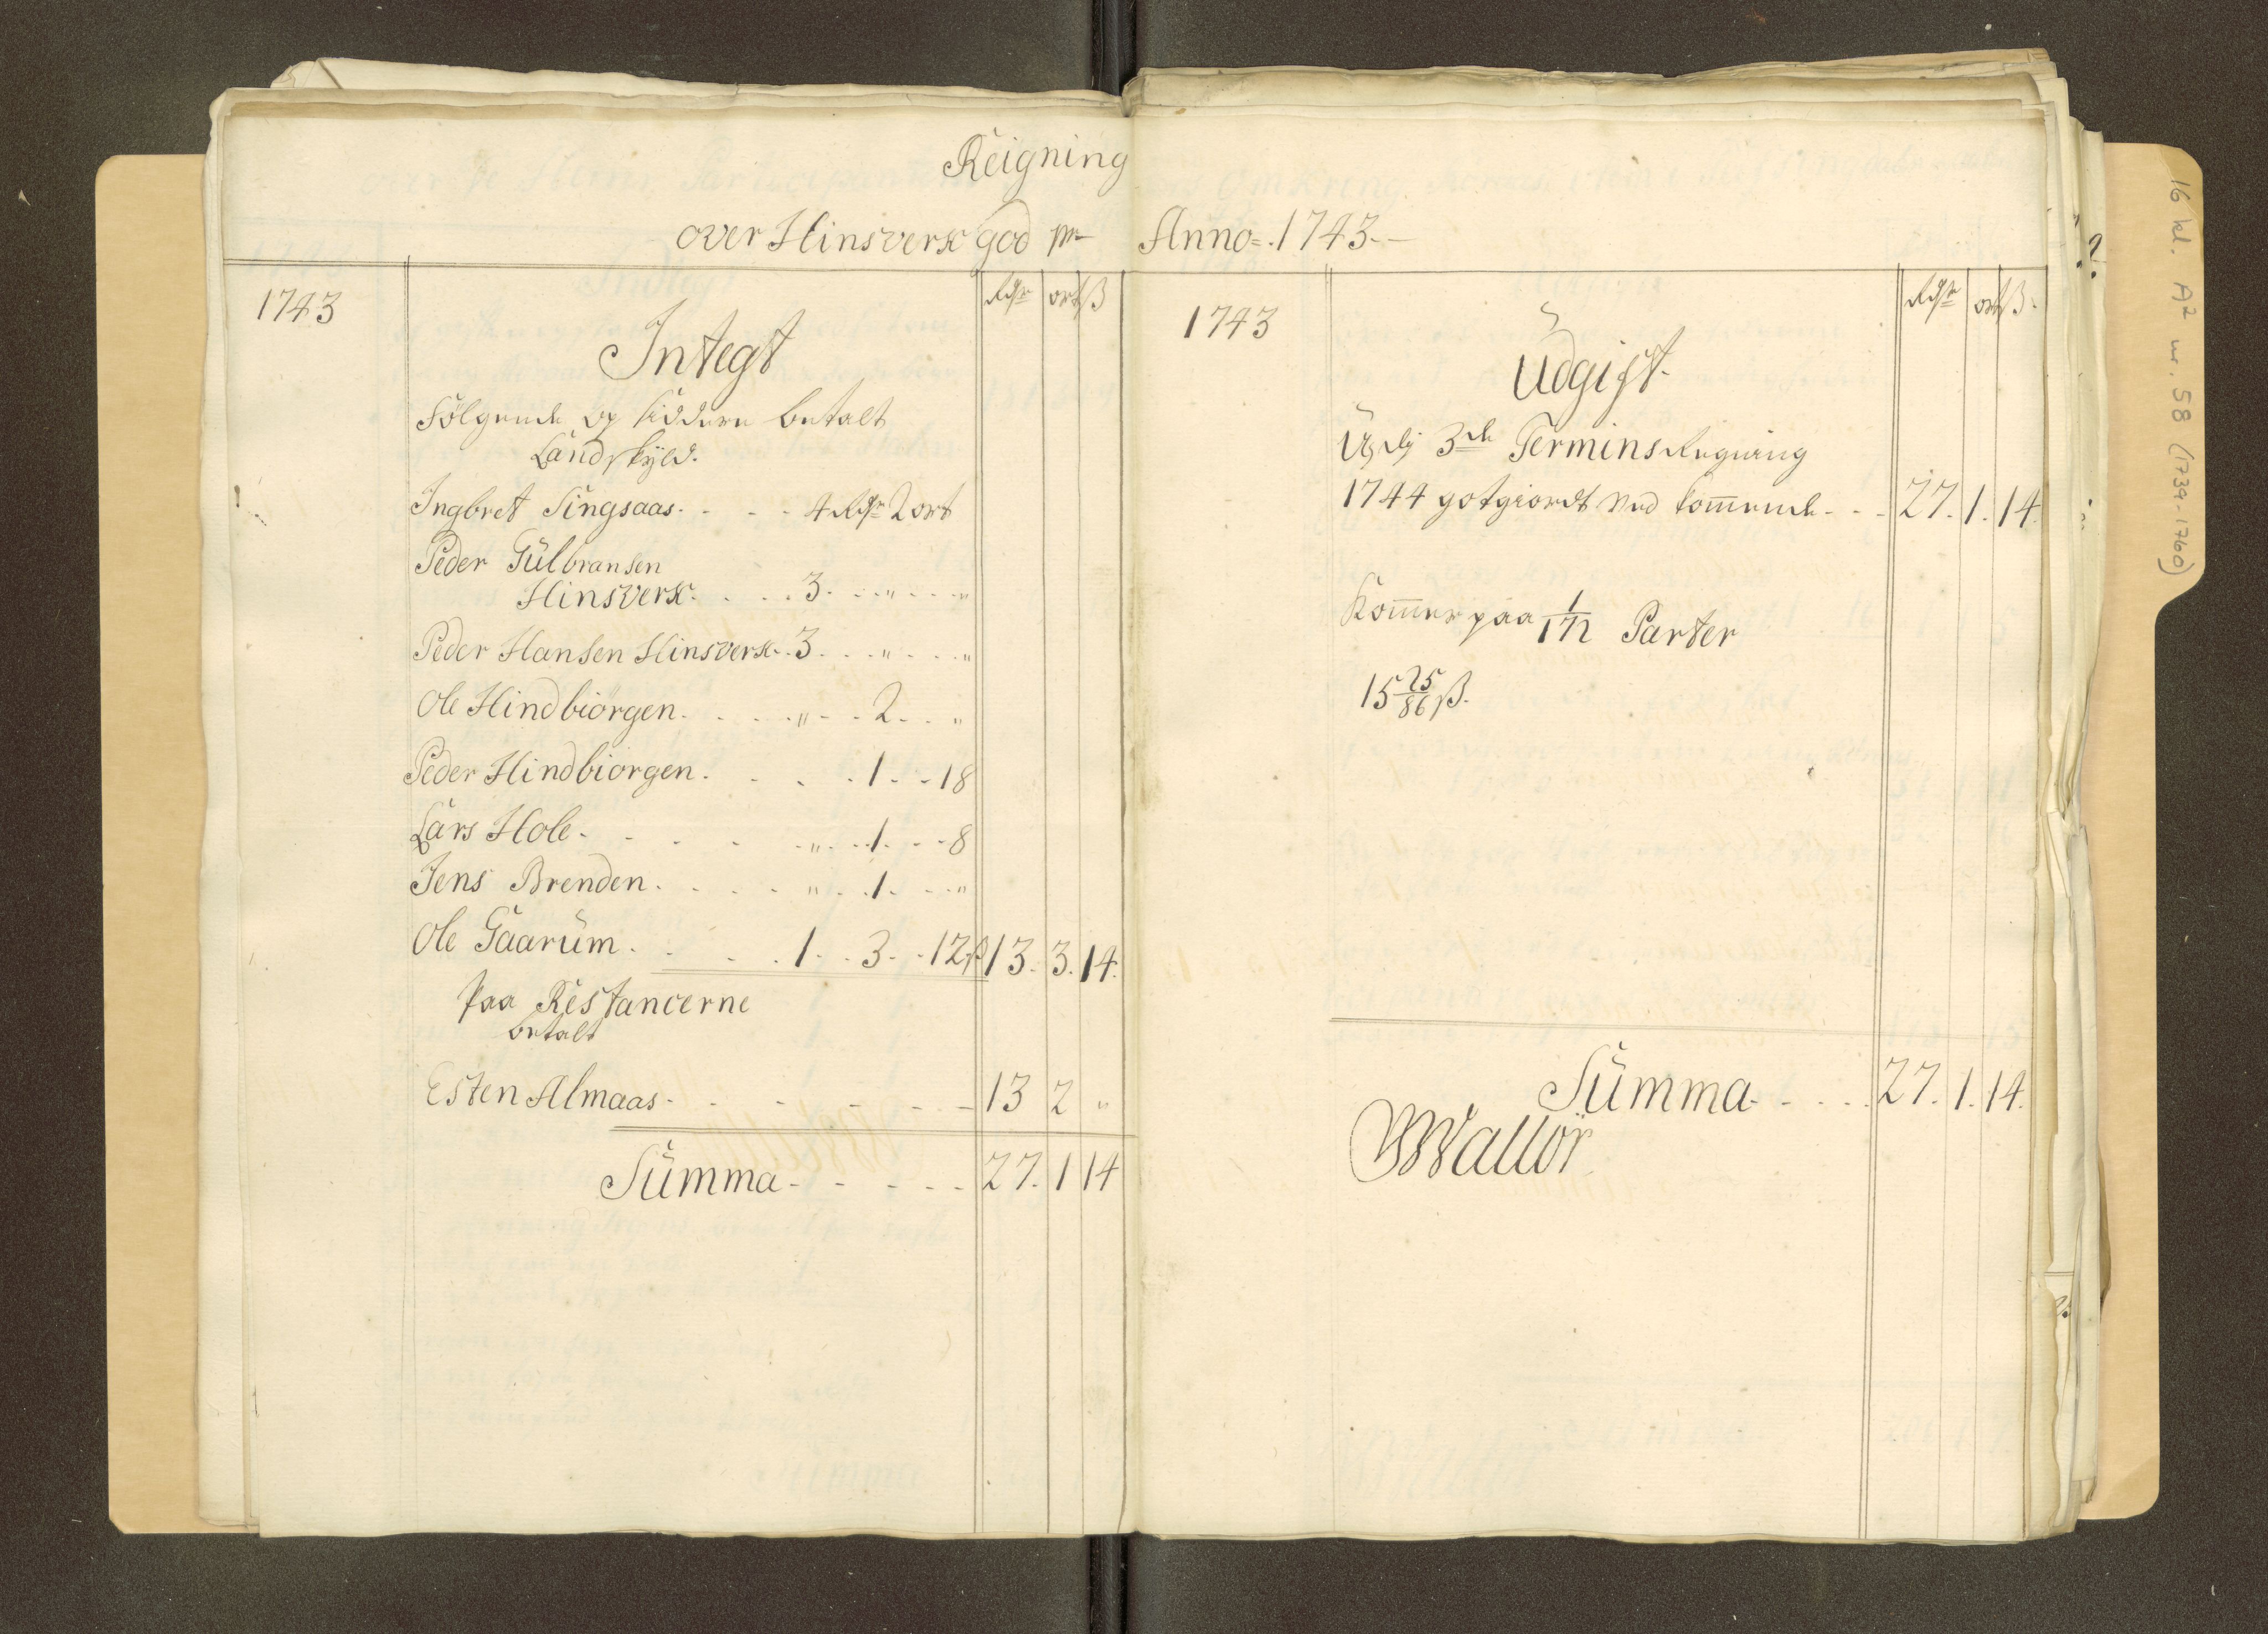 Reigning
over Hinsverk god pr Anno 1743
1743
Rdr ort ß
Integt
Følgende op siddere betalt
Landskÿld.
Ingbret Singsaas 4 Rdr 2 ort
Peder Gülbransen
Hinsverk 3 " "
Peder Hansen Hinsverk 3 " "
Ole Hindbiørgen " 2 "
Peder Hindbiørgen 1 18
Lars Hole " 1 8
Jens Brenden " 1 "
Ole Gaarüm 1 3 12 ß 13 3 14
Paa Restancerne
betalt
Esten Almaas 13 2 "
Sümma 27 1 14
1743
Rdr ort ß
Üdgift
3de Termins Regning
1744 gotgiordt Ved kom̅ende 27 1 14
Kom̅er paa 1/172 Parter
15 25/86 ß.
Sümma 27 1 14
Wallør
16 kl. A2 nr. 58 (1739-1760)